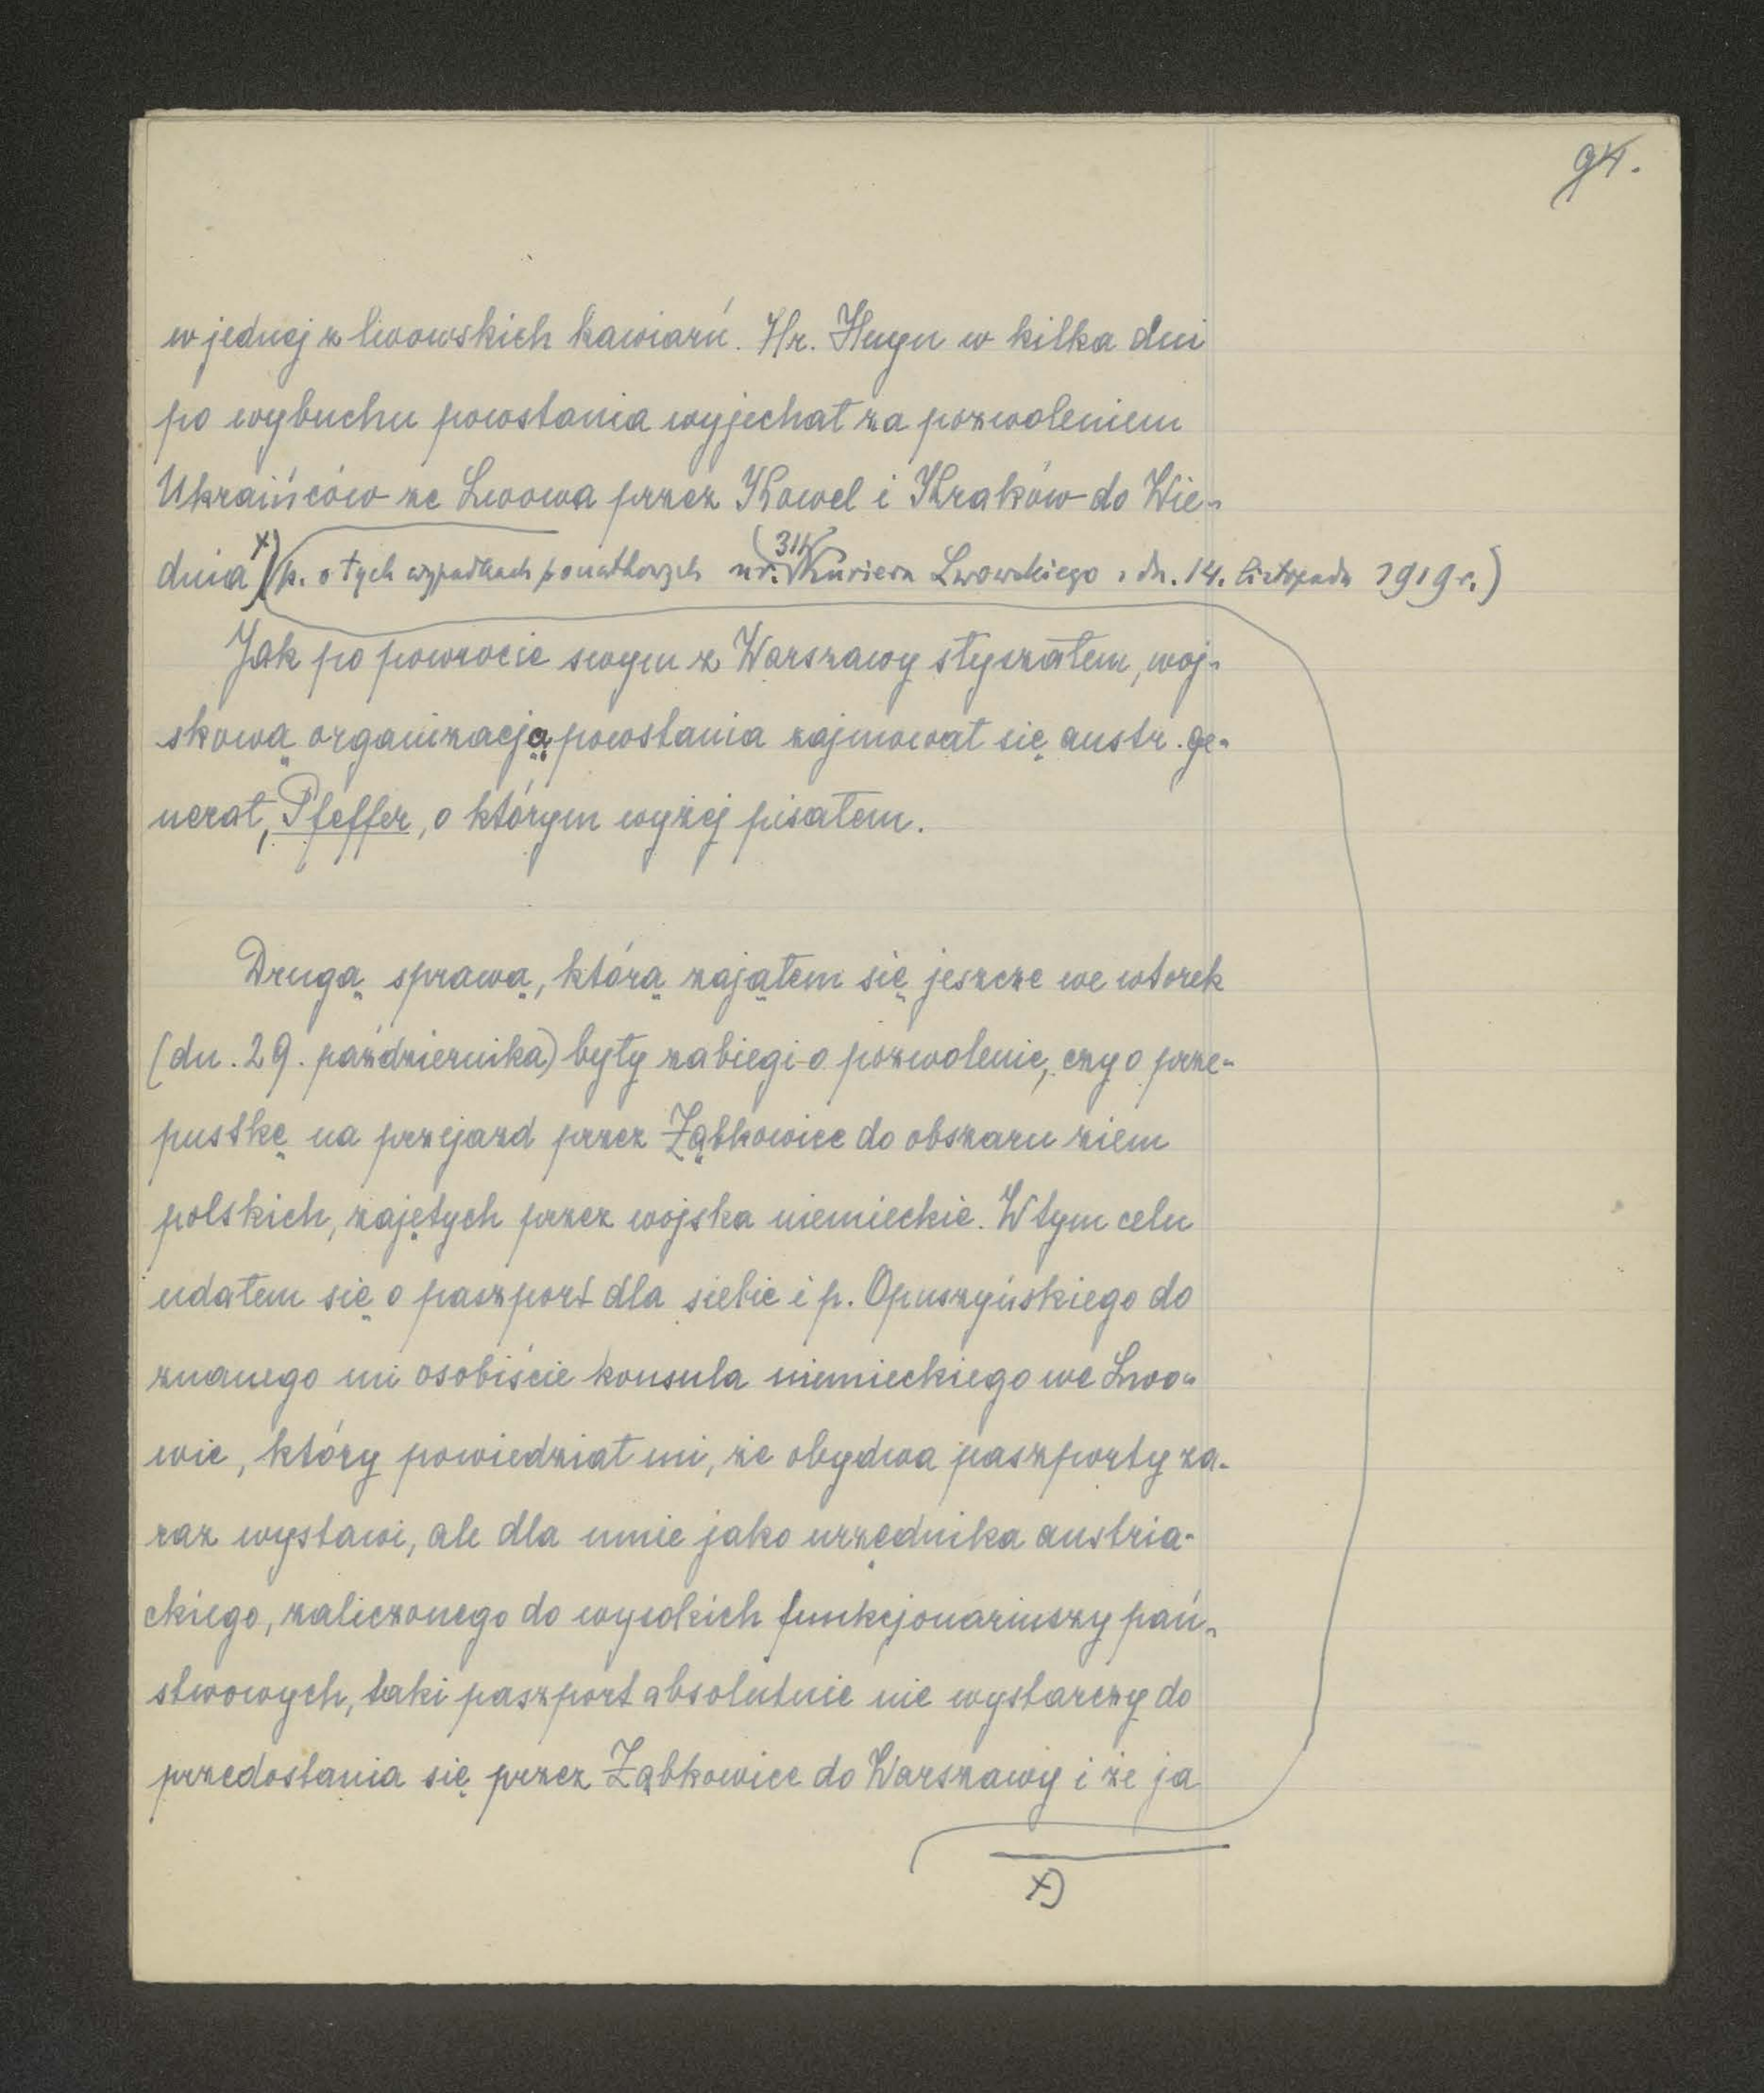 94.
w jednej z lwowskich kawiarń. Hr. Huyn w kilka dni
po wybuchu powstania wyjechał za pozwoleniem
Ukraińców ze Lwowa przez Kowel i Kraków do Wie-
dnia x) (p. o tych wypadkach początkowych nr. 314 Kuriera Lwowskiego z dn. 14. listopada 1919 r.)
Jak po powrocie swym z Warszawy słyszałem, woj-
skową organizacją powstania zajmował się austr. ge-
nerał, Pfeffer, o którym wyżej pisałem.
Drugą sprawą, którą zająłem się jeszcze we wtorek
(dn. 29. października) były zabiegi o pozwolenie, czy o prze-
pustkę na przejazd przez Ząbkowice do obszaru ziem
polskich, zajętych przez wojska niemieckie. W tym celu
udałem się o paszport dla siebie i p. Opuszyńskiego do
znanego mi osobiście konsula niemieckiego we Lwo-
wie, który powiedział mi, że obydwa paszporty za-
raz wystawi, ale dla mnie jako urzędnika austria-
ckiego, zaliczonego do wysokich funkcjonariuszy pań-
stwowych, taki paszport absolutnie nie wystarczy do
przedostania się przez Ząbkowice do Warszawy i że ja
x)